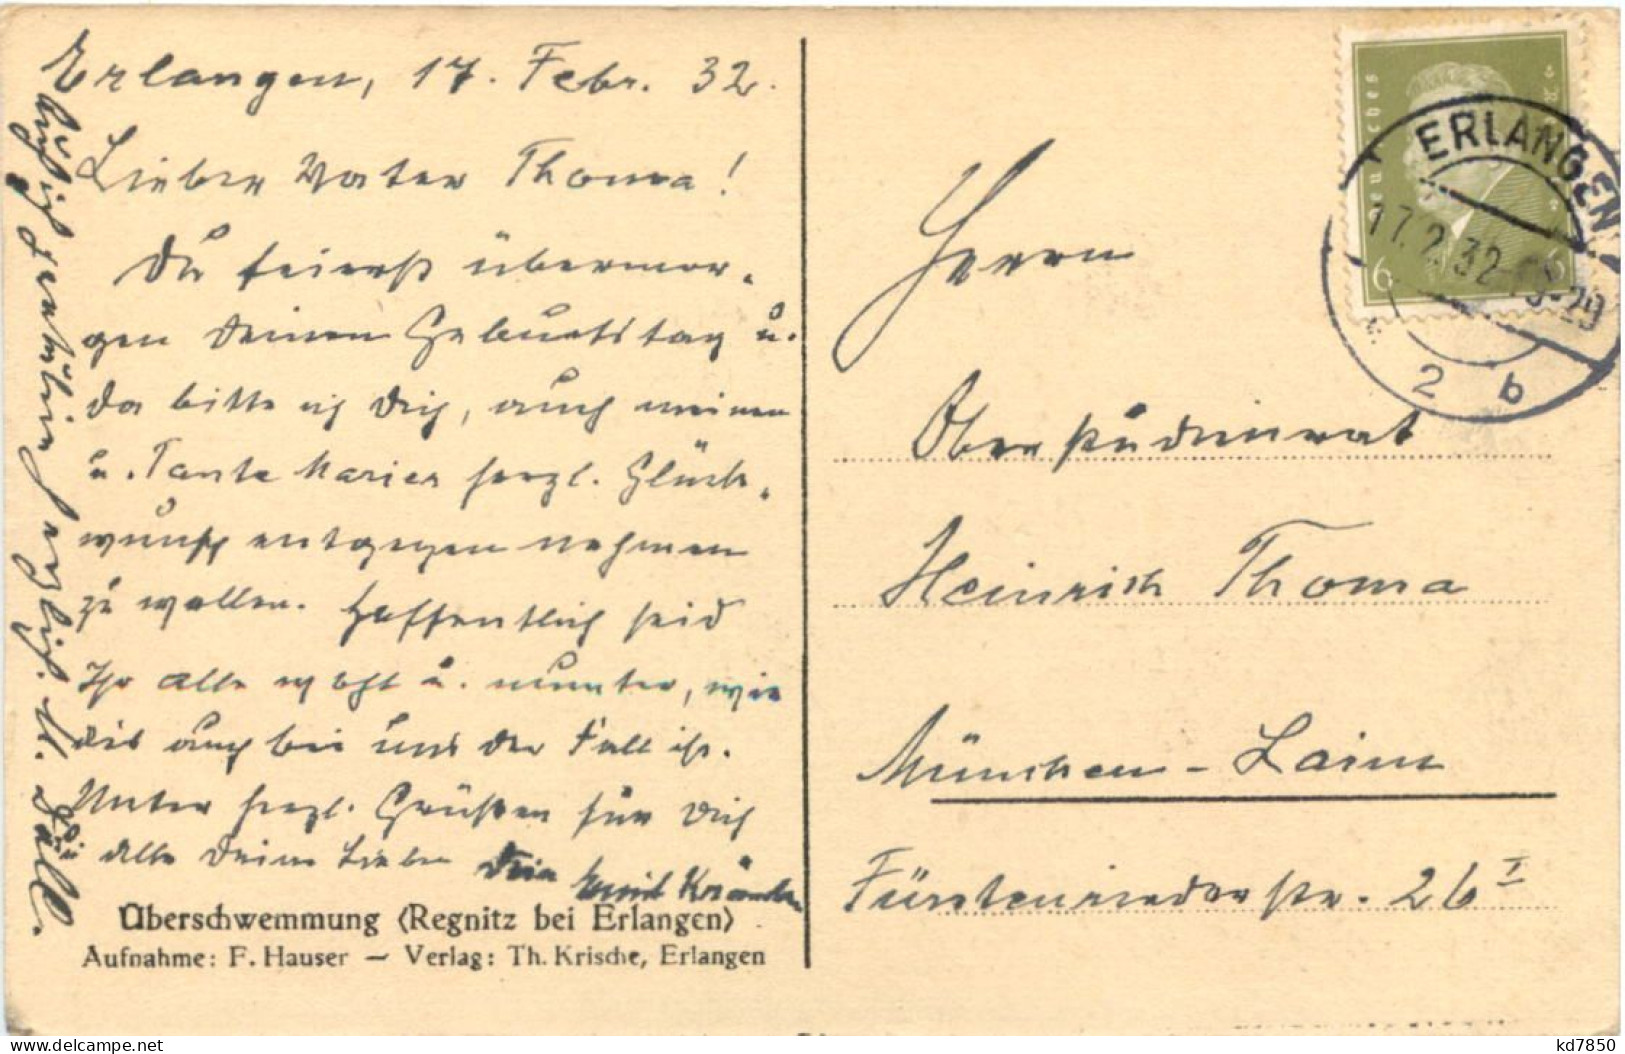 Erlangen, 17. Febr. 32.
Lieber Vater Thoma!
Du feierst übermor-
gen Deinen Geburtstag u.
da bitte ich Dich, auch meinen
u. Tante Maries herzl. Glück-
wunsch entgegen nehmen
zu wollen. Hoffentlich seid
Ihr alle wohl u. munter, wie
dies auch bei uns der Fall ist.
Unter herzl. Grüßen für Dich
u. alle Deine Lieben Dein Emil
herzlich
Überschwemmung (Regnitz bei Erlangen)
Aufnahme: F. Hauser — Verlag: Th. Krische, Erlangen
Deutsches
6 6
ERLANGEN
17.2.32
2 b
Herrn
Oberstudienrat
Heinrich Thoma
München-Laim
Fürstenriederstr. 26 I
delcampe.net
kd7850